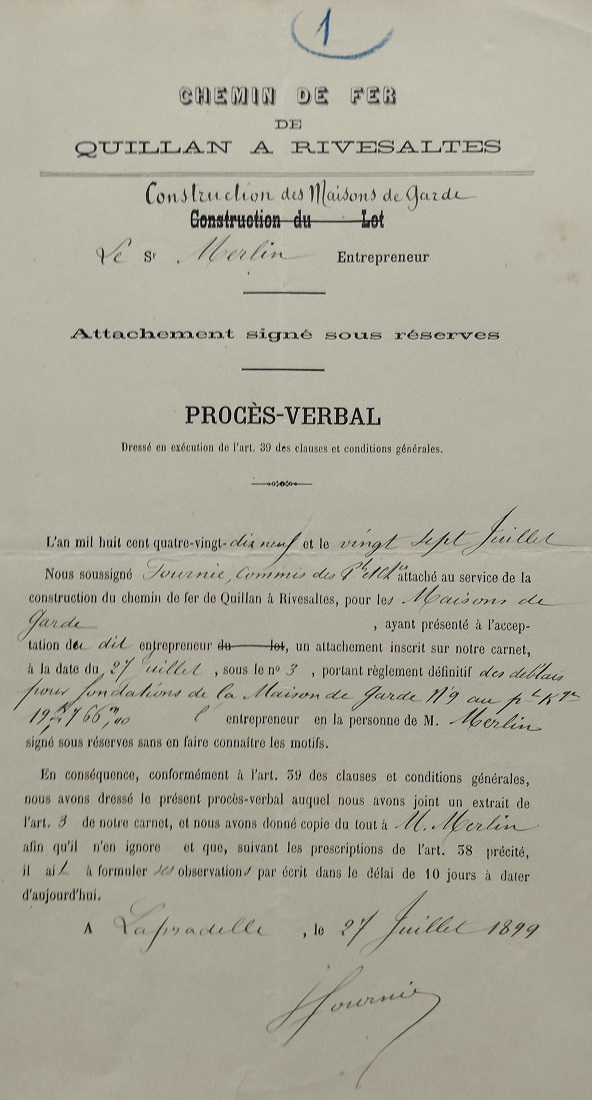 1
CHEMIN DE FER
DE
QUILLAN A RIVESALTES
Construction des Maisons de Garde
Construction du Lot
Le Sr Merlin Entrepreneur
Attachement signé sous réserves
PROCÈS-VERBAL
Dressé en exécution de l'art. 39 des clauses et conditions générales.
L'an mil huit cent quatre-vingt-dix neuf et le vingt sept Juillet
Nous soussigné Fournié, Commis des Pts et Chées attaché au service de la
construction du chemin de fer de Quillan à Rivesaltes, pour les Maisons de
Garde , ayant présenté à l'accep-
tation du dit entrepreneur du lot, un attachement inscrit sur notre carnet,
à la date du 27 juillet , sous le no 3 , portant règlement définitif des déblais
pour fondations de la Maison de Garde No 9 au pt Kque
19k,766m,00 l' entrepreneur en la personne de M. Merlin
signé sous réserves sans en faire connaître les motifs.
En conséquence, conformément à l'art. 39 des clauses et conditions générales,
nous avons dressé le présent procès-verbal auquel nous avons joint un extrait de
l'art. 3 de notre carnet, et nous avons donné copie du tout à M. Merlin
afin qu'il n'en ignore et que, suivant les prescriptions de l'art. 38 précité,
il ait à formuler ses observations par écrit dans le délai de 10 jours à dater
d'aujourd'hui.
A Lapradelle , le 27 Juillet 1899
Fournié